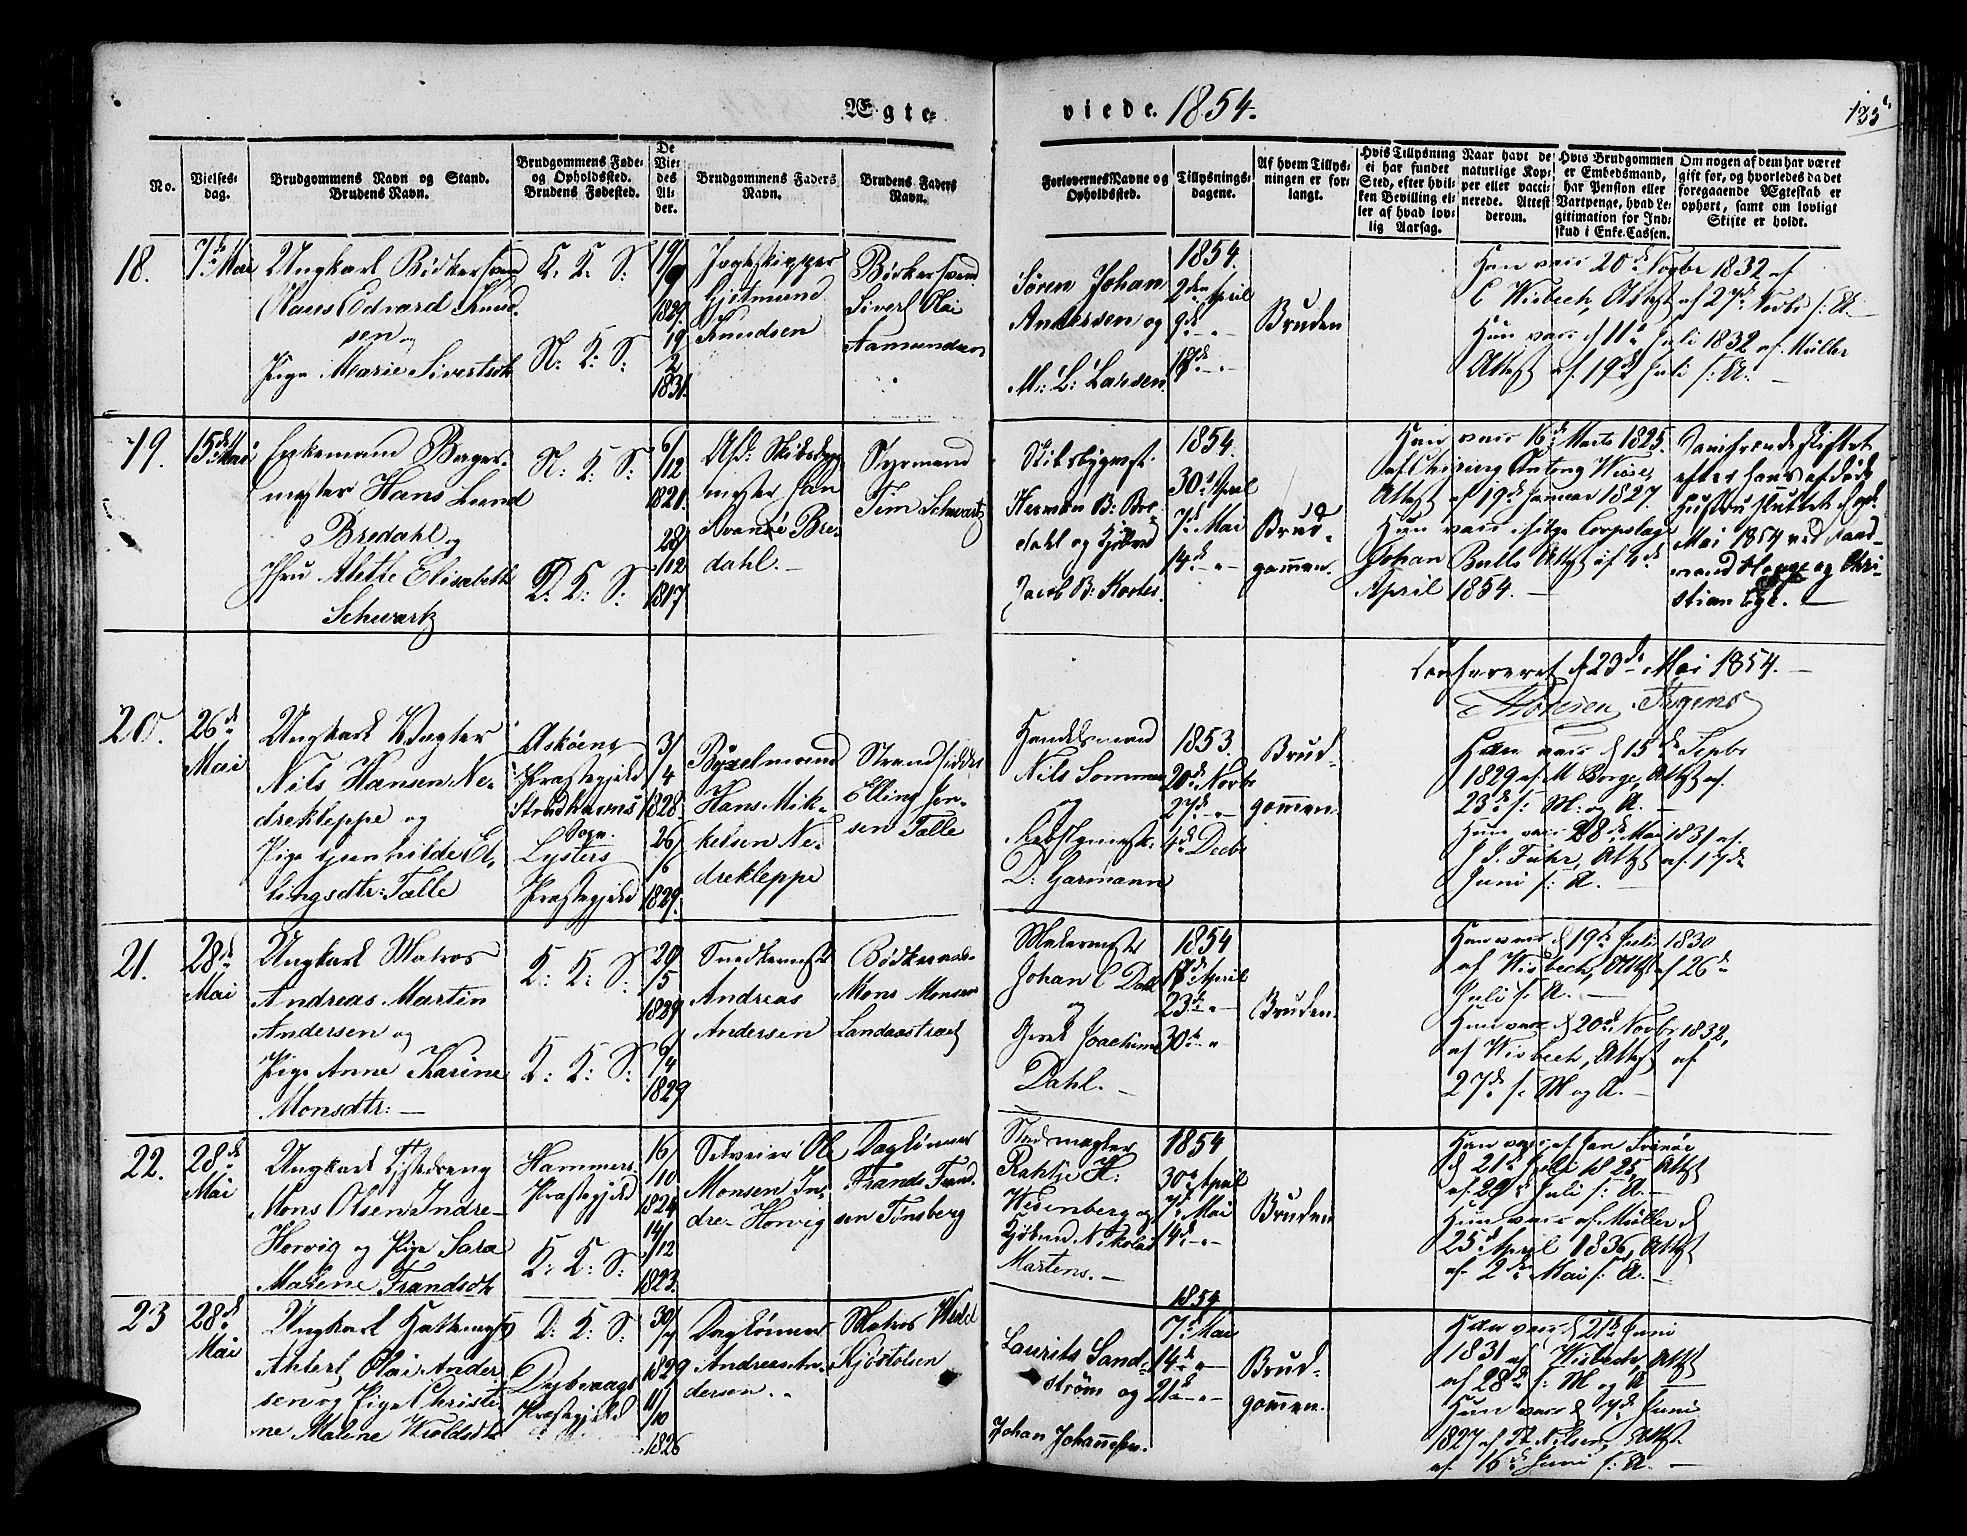 Ægte=
viede. 1854.
135
No.
Vielses-
dag.
Brudgommens Navn og Stand.
Brudens Navn.
Brudgommens Føde-
og Opholdssted.
Brudens Fødested.
De
Vie-
des
Al-
der.
Brudgommens Faders
Navn.
Brudens Faders
Navn.
Forlovernes Navne og
Opholdssted.
Tillysnings-
dagene.
Af hvem Tillys-
ningen er for-
langt.
Hvis Tillysning
ei har fundet
Sted, efter hvil-
ken Bevilling el-
ler af hvad lov-
lig Aarsag.
Naar havt de
naturlige Kop-
per eller vacci-
nerede. Attest
derom.
Hvis Brudgommen
er Embedsmand,
har Pension eller
Vartpenge, hvad Le-
gitimation for Ind-
skud i Enke-Cassen.
Om nogen af dem har været
gift før, og hvorledes da det
foregaaende Ægteskab er
ophørt, samt om lovligt
Skifte er holdt.
18.
7de Mai
Ungkarl Bødkersvend
Claus Edvard Knud-
sen og
Pige Marie Sivertsdtr
K: K: S:
N: K: S:
19/
9
1829.
19
2
1831.
Jagtskipper
Gjetmund
Knudsen
Bødkersvend
Sivert Olai
Aamundsen
Søren Johan
Andersen og
M: L: Larsen.
1854.
2den April
9de - -
17de - -
Bruden
Han vacc 20de Novbr 1832 af
C Wisbech, Attest af 27de Novbr s: A. -
Hun vacc d 11te Juli 1832 af Müller
Attest af 19de Juli s: A. -
19.
15de Mai
Enkemand Berger-
mester Hans Lund
Bredahl og
Jfru Alette Elisabeth
Schwartz
N: K: S:
D: K: S:
6/
12
1821.
28/
12
1817
Afd: Skibsbyg-
mester Jan
Svanøe Bre-
dahl. -
Styrmand
Tim Schwartz
Skibsbygmest:
Herman B: Bre-
dahl og Kjøbmd
Jacob B: Kroles.
1854.
30te April
7de Mai
14de - -
Brud-
gommen.
Han vacc 16de Marts 1825
af Chirurg Antony Wisse,
Attest af 19de Januar 1827.
Hun vacc ifølge Corpslæge
Johan Bulls Attest af 4de
April 1854. -
Samfrændeskiftet
efter hans afdøde
Hustru sluttet d 9de
Mai 1854 ved Kand-
mand Hoppe og Chri-
stian Ege. -
Confereret d 23de Mai 1854. -
20.
26de
Mai
Ungkarl Vægter
Nils Hansen Ne-
drekleppe og
Pige Gunhilde El-
lingsdtr: Talle
Askøens
Præstegjeld
Strudshavns
Sogn.
Lysters
Præstegjeld
3/
4
1828.
26/
6
1829.
Byxelmand
Hans Mik-
kelsen Ne-
drekleppe
Strandsidder
Elling Jen-
sen Talle
Handelsmand
Nils Sommer
og
Rebslgmest:
D: Garmann
1853.
20de Novbr
27de - -
4de Decbr
Brud-
gommen.
Han vacc d 15de Septbr
1829 af M Borge, Attest af
23de s: M: og A. -
Hun vacc 28de Mai 1831 af
J J. Fuhr, Attest af 17de
Juni s: A. -
21.
28de
Mai
Ungkarl Matros
Andreas Martin
Andersen og
Pige Anne Karine
Monsdtr: -
K: K: S:
K: K: S:
20
/5
1829
6/
4
1829
Snedkermstr
Andreas
Andersen
Bødkermst
Mons Monsen
Landaastræet
Malermestr
Johan C Dahl
og
Geret Joachim
Dahl. -
1854
17de April
23de -
30te -
Bruden
Han vacc d 19de Juli 1830
af Wisbech, Attest af 26de
Juli s: A. -
Hun vacc d 20de Novbr 1832,
af Wisbech, Attest af
27de s: M og A. -
22.
28de
Mai
Ungkarl Tjstedreng
Mons Olsen Indre-
Horvig og Pige Sara
Malene Frandsdtr
Hammers
Præstegjeld
K: K: S:
16/
10
1824
14/
12
1823.
Selveier Ole
Monsen In-
dre-Horvig
Dagløner
Frands Frand-
sen Tønsberg
Stadsmægler
Rahtje H:
Wesenberg og
Kjøbmd. Nikolai
Martens. -
1854
30te April
7de Mai
14de - -
Bruden
Han vacc af Jan Svanøe
d 21de Juli 1825, Attest
af 29de Juli s: A. -
Hun vacc af Müller d
25de April 1836, Attest
af 2den Mai s: A. -
23
28de
Mai
Ungkarl Hattemag
Ahlert Olai Ander-
sen og Pige Christi-
ne Malene Wioldsdtr
D: K: S:
Dybvaags
Præstegjeld
30/
7
1829
11/
10
1826
Dagløner
Andreas An-
dersen. -
Matros Wiold
Kjøstolsen
Laurits Sand-
strøm og
Johan Johannessen.
1854
7de Mai
14de -
21de - -
Brud-
gommen.
Han vacc d 21de Juni
1831 af Wisbech, Attest
af 28de s: M og A -
Hun vacc d 7de Juni
1827 af Th Nilsen, Attest
af 16de Juni s: A. -